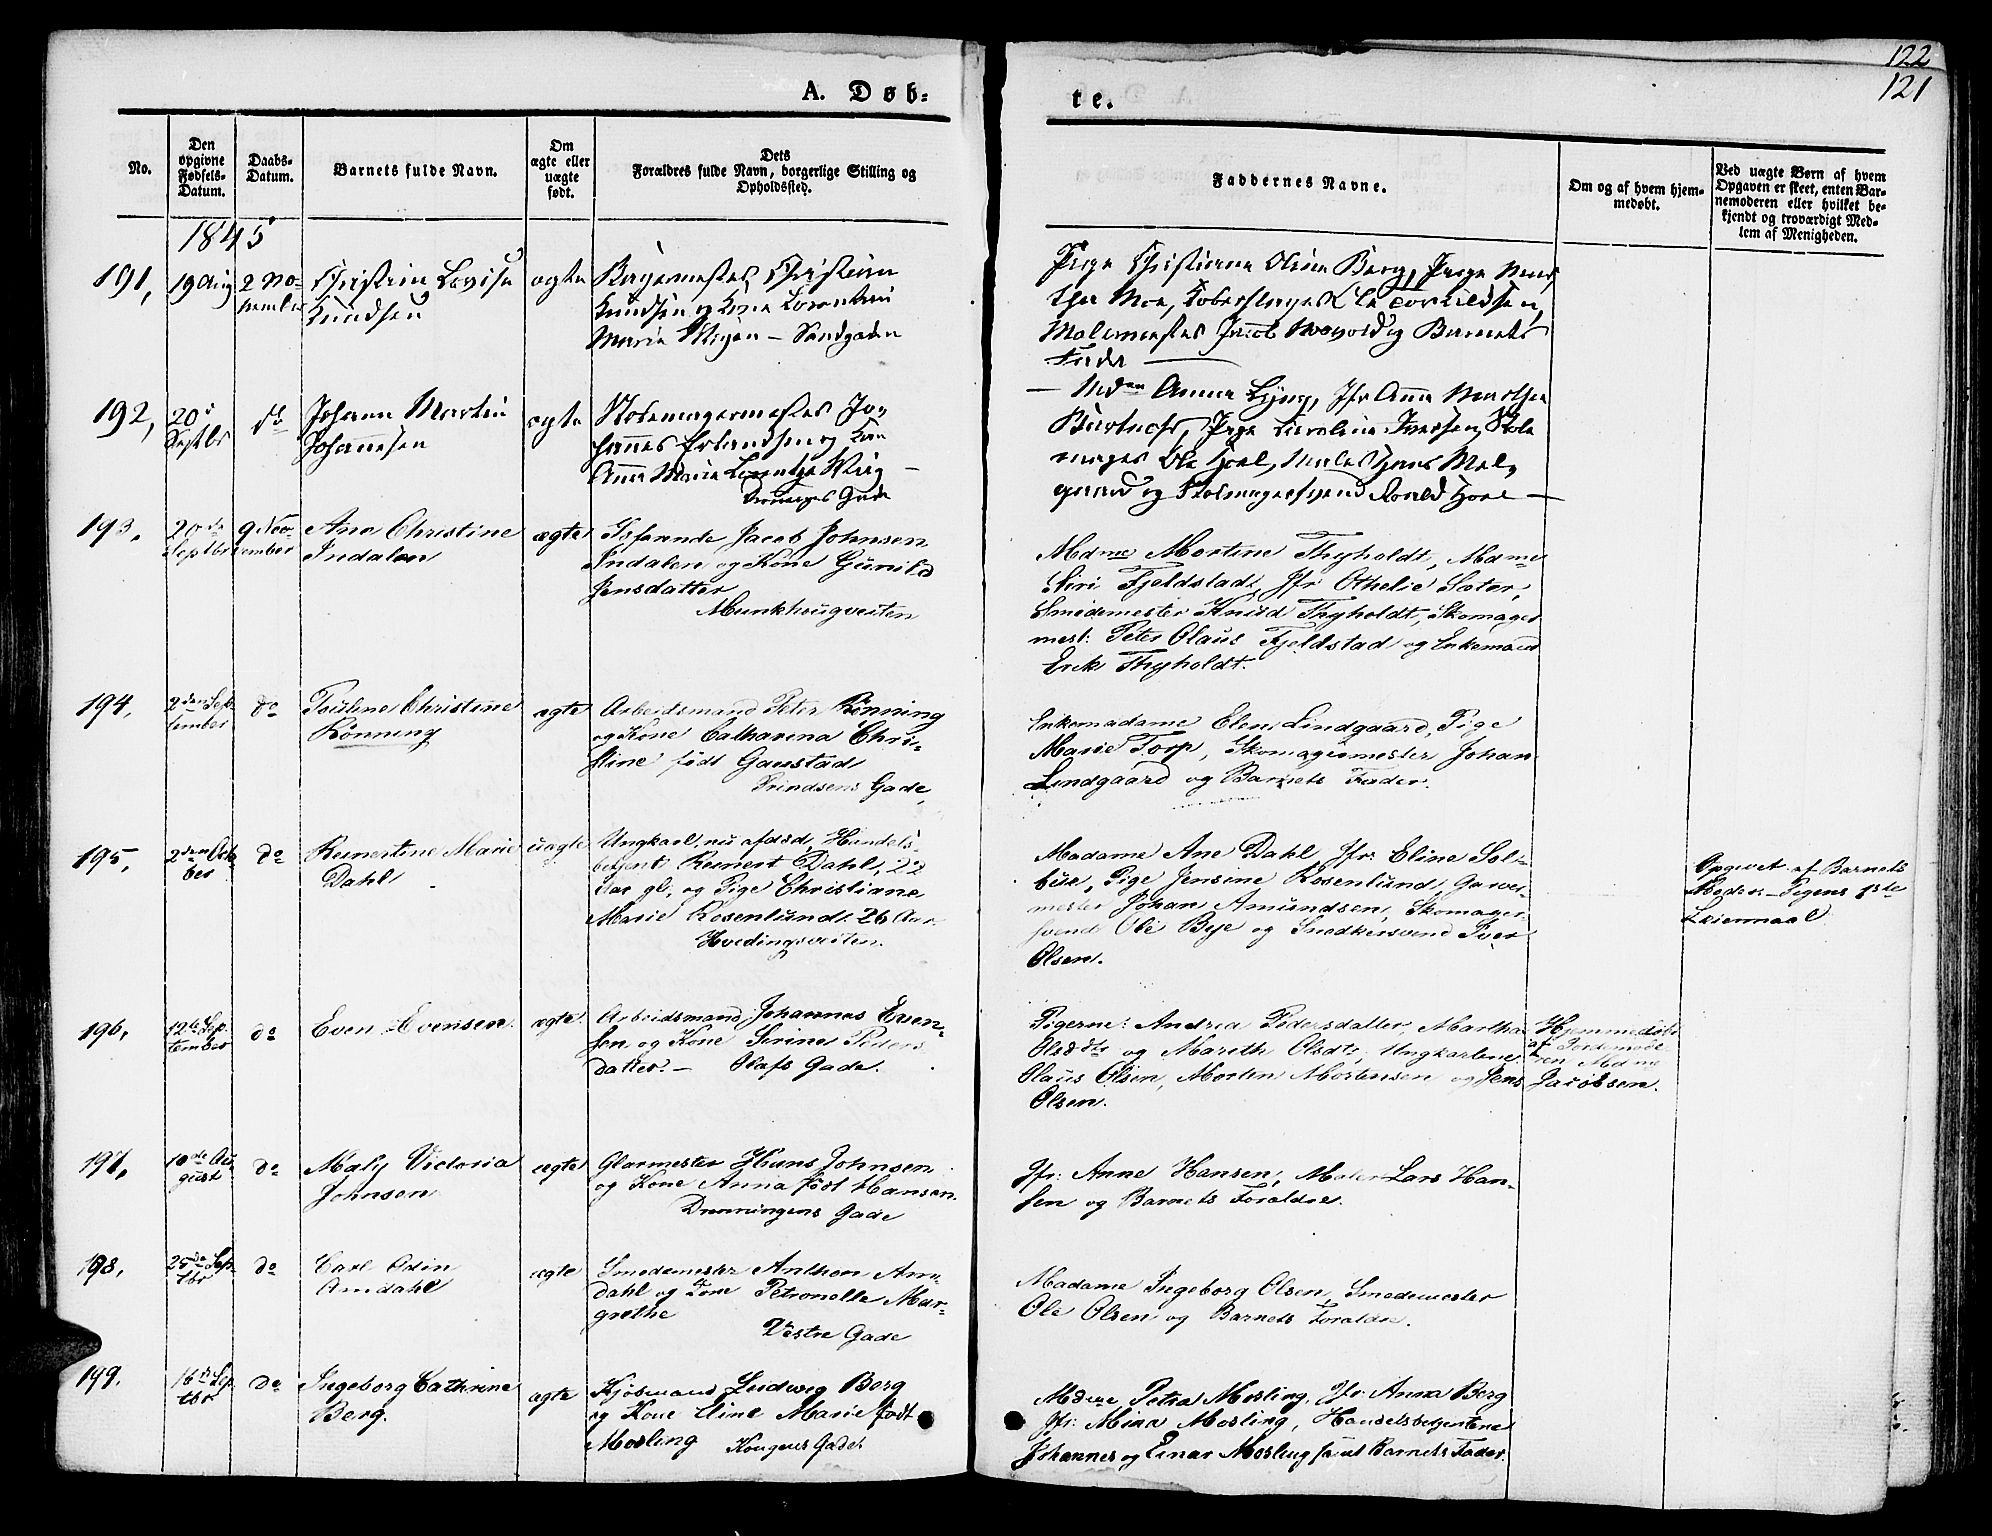 122
121
A. Døb-
te.
No.
Den
opgivne
Fødsels-
Datum.
Daabs-
Datum.
Barnets fulde Navn.
Om
ægte eller
uægte
født.
Dets
Forældres fulde Navn, borgerlige Stilling og
Opholdssted.
Faddernes Navne.
Om og af hvem hjem-
medøbt.
Ved uægte Børn af hvem
Opgaven er skeet, enten Bar-
nemoderen eller hvilket be-
kjendt og troværdigt Med-
lem af Menigheden.
1845
191,
19 Aug
2 No-
vember
Christin Lovise
Knudsen
ægte
Bagermester Christian
Knudsen og Kone
Marie - Sandgaden
Pige Christiane Oline Berg, Pige Mar-
tha Moe,
Malermester Jacob og Barnets
Fader
192,
20
Septbr
do
Johann Martin
Johannesen
ægte
Stolemagermester Jo-
hannes Erlandsen og Kone
Anna Marie Wiig -
Dronnings Gade
- Madm Anna Lyng, Jfr Anna Marthea
Pige Karoline Iversen, Stole
mager Ole Hoel, Maler Hans Mel-
gaard og Stolmagersvend Hoel -
193.
20de
Septbr
9 Nov-
vember
Ane Christine
Indalen
ægte
Isfarende Jacob Johnsen
Indalen og Kone Gunild
Jensdatter
Munkhaugveiten
Madme Martine Thyholdt, Madme
Siri Fjeldstad, Jfr: Othelie Sæter,
Smedemester Knud Thyholdt, Skomager
mest: Peter Olaus Fjeldstad og Enkemand
Erik Thyholdt.
194.
2den Sep-
tember
do
Pauline Christine
Rönning
ægte
Arbeidsmand Peter Rönning
og Kone Catharina Chri-
stine født Gaustad
Prindsens Gade,
Enkemadame Elen Lindgaard, Pige
Marie Torp, Skomagermester Johan
Lindgaard og Barnets Fader.
195,
2den Octo
ber
do
Reinertine Marie
Dahl
uægte
Ungkarl, nu afdød, Handels-
betjent Reinert Dahl, 22
Aar gl, og Pige Christiane
Marie Rosenlund 26 Aar.
Hvedingsveiten.
Madame Ane Dahl Jfr: Eline Sol-
bue, Pige Jensine Rosenlund, Garver
mester Johan Amundsen, Skomager-
svend Ole Bye og Snedkersvend Iver
Olsen.
Opgivet af Barnets
Moder - Pigens 1ste
Leiermaal
196,
12te Sep-
tember
do
Even Evensen.
ægte.
Arbeidsmand Johannes Even-
sen og Kone Sirine Peders
datter. - Olafs Gade.
Pigerne: Andrea Pedersdatter, Martha
Olsddtr og Mareth Olsdtr, Ungkarlene
Olaus Olsen, Morten Mortensen og Jens
Olsen.
Hjemmedöbt
af Jordemode-
ren Madme
Jacobsen.
197,
10de Au-
gust
do
Maly Victoria
Johnsen
ægte
Glarmester Hans Johnsen
og Kone Anna født Hansen.
Dronningens Gade
Jfr: Anne Hansen, Maler Lars Han-
sen og Barnets Forældre.
198,
25de Sep-
tbr
do
Carl Odin
Amdahl
ægte
Smedemester Anthon Am-
dahl og Kone Petronelle Mar-
grethe
Vestre Gade
Madame Ingeborg Olsen, Smedemester
Ole Olsen og Barnets Forældre.
199.
16de Sep
tbr
do
Ingeborg Cathrine
Berg.
ægte
Kjøbmand Ludvig Berg
og Kone Eline Marie født
Mosling Kongens Gade
Petra Mosling, Jfr: Anna Berg
Jfr: Mina Mosling, Handelsbetjentene
Johannes og Einar Mosling samt Barnets Fader.